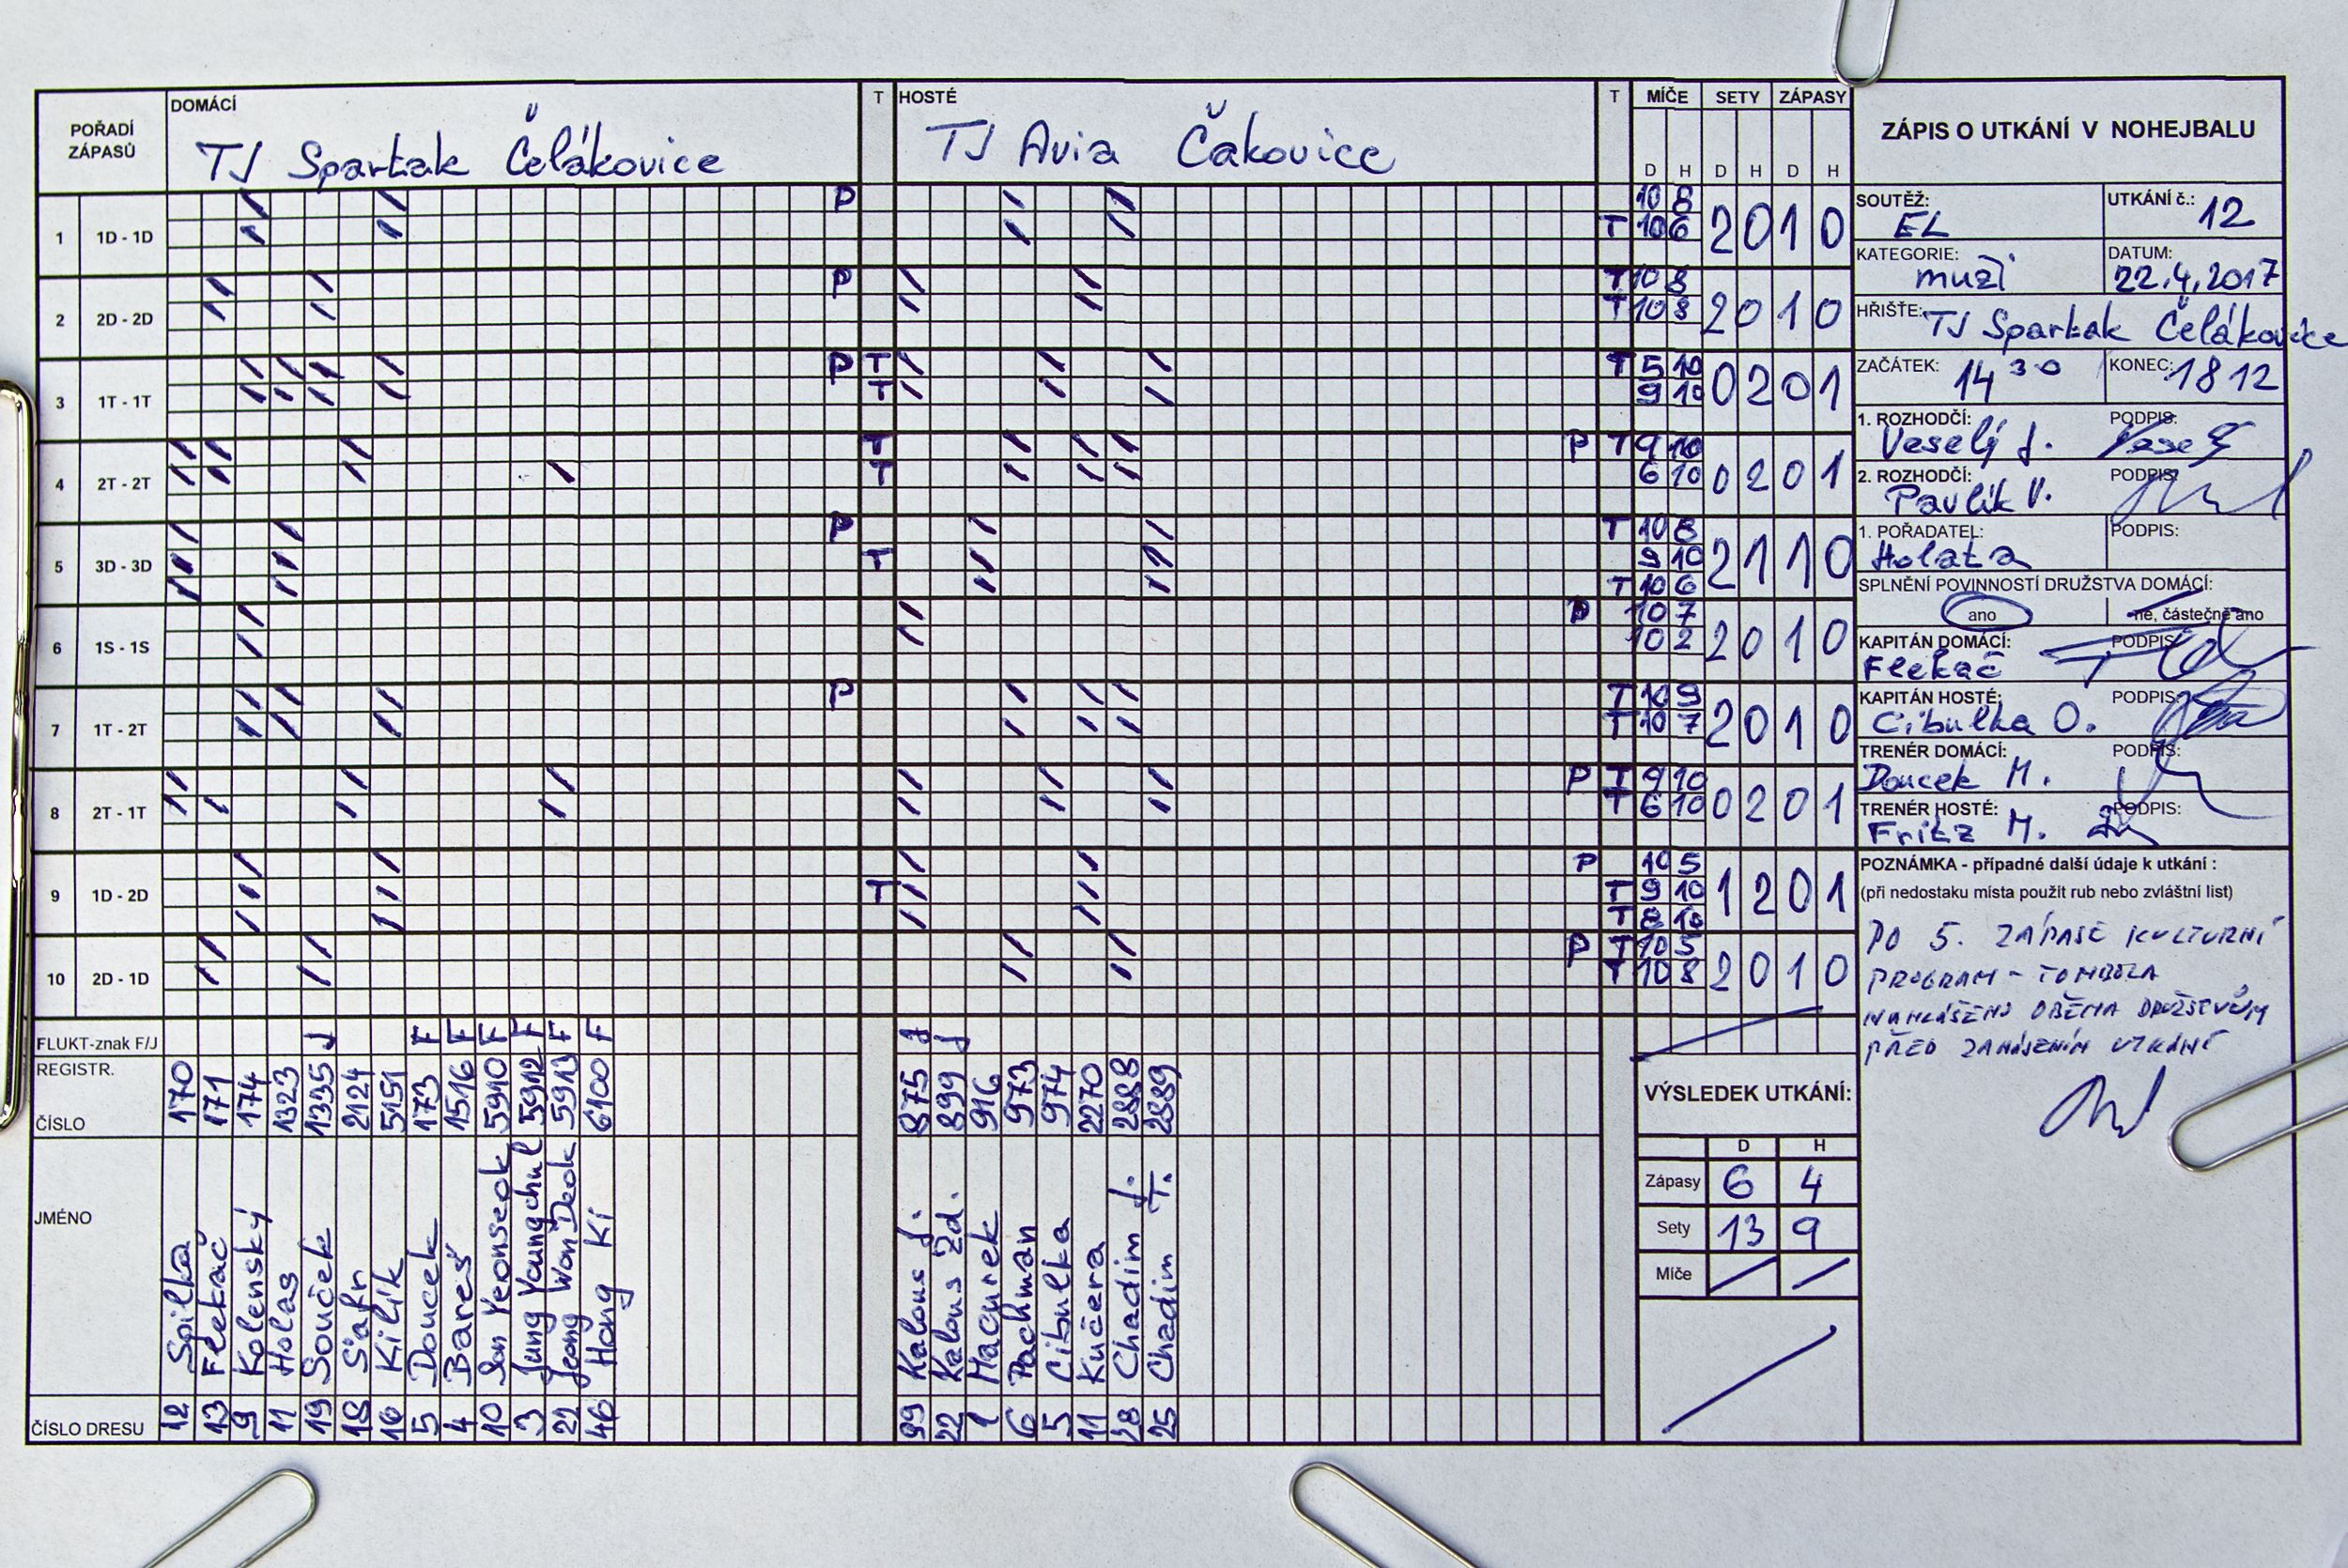 POŘADÍ ZÁPASŮ DOMÁCÍ T HOSTÉ T MÍČE SETY ZÁPASY
TJ Spartak Čelákovice TJ Avia Čakovice
D H D H D H
1 1D - 1D P 10 8 2 0 1 0
T 10 6
2 2D - 2D P T 10 8 2 0 1 0
T 10 8
3 1T - 1T P T T 5 10 0 2 0 1
T 9 10
4 2T - 2T T P T 9 10 0 2 0 1
T 6 10
5 3D - 3D P T 10 8 2 1 1 0
T 9 10
T 10 6
6 1S - 1S P 10 7 2 0 1 0
10 2
7 1T - 2T P T 10 9 2 0 1 0
T 10 7
8 2T - 1T P T 9 10 0 2 0 1
T 6 10
9 1D - 2D P 10 5 1 2 0 1
T T 9 10
T 8 10
10 2D - 1D P T 10 5 2 0 1 0
T 10 8
FLUKT-znak F/J J F F F F F F J J
REGISTR. ČÍSLO 170 171 174 1323 1335 2124 5151 173 1516 5910 5912 5913 6100 875 899 916 973 974 2270 2888 2889
JMÉNO Spilka Flekač Kolenský Holas Souček Šafr Kilík Doucek Bareš Son Yeonseok Jung Youngchul Jeong Won Deok Hong Ki Kalous J. Kalous Zd. Macurek Pachman Cibulka Kučera Chadim J. Chadim T.
ČÍSLO DRESU 12 13 9 11 19 18 16 5 4 10 3 22 46 99 22 1 6 5 11 28 25
VÝSLEDEK UTKÁNÍ:
D H
Zápasy 6 4
Sety 13 9
Míče
ZÁPIS O UTKÁNÍ V NOHEJBALU
SOUTĚŽ: EL UTKÁNÍ č.: 12
KATEGORIE: muži DATUM: 22.4.2017
HŘIŠTE: TJ Spartak Čelákovice
ZAČÁTEK: 14 30 KONEC: 18 12
1. ROZHODČÍ: Veselý J. PODPIS:
2. ROZHODČÍ: Pavlík V. PODPIS:
1. POŘADATEL: Holata PODPIS:
SPLNĚNÍ POVINNOSTÍ DRUŽSTVA DOMÁCÍ:
ano ne, částečně ano
KAPITÁN DOMÁCÍ: Flekač PODPIS:
KAPITÁN HOSTÉ: Cibulka O. PODPIS:
TRENÉR DOMÁCÍ: Doucek M. PODPIS:
TRENÉR HOSTÉ: Fritz M. PODPIS:
POZNÁMKA - případné další údaje k utkání :
(při nedostaku místa použít rub nebo zvláštní list)
PO 5. ZÁPASE KULTURNÍ
PROGRAM - TOMBOLA
NAHLÁŠENO OBĚMA DRUŽSTVŮM
PŘED ZAHÁJENÍM UTKÁNÍ